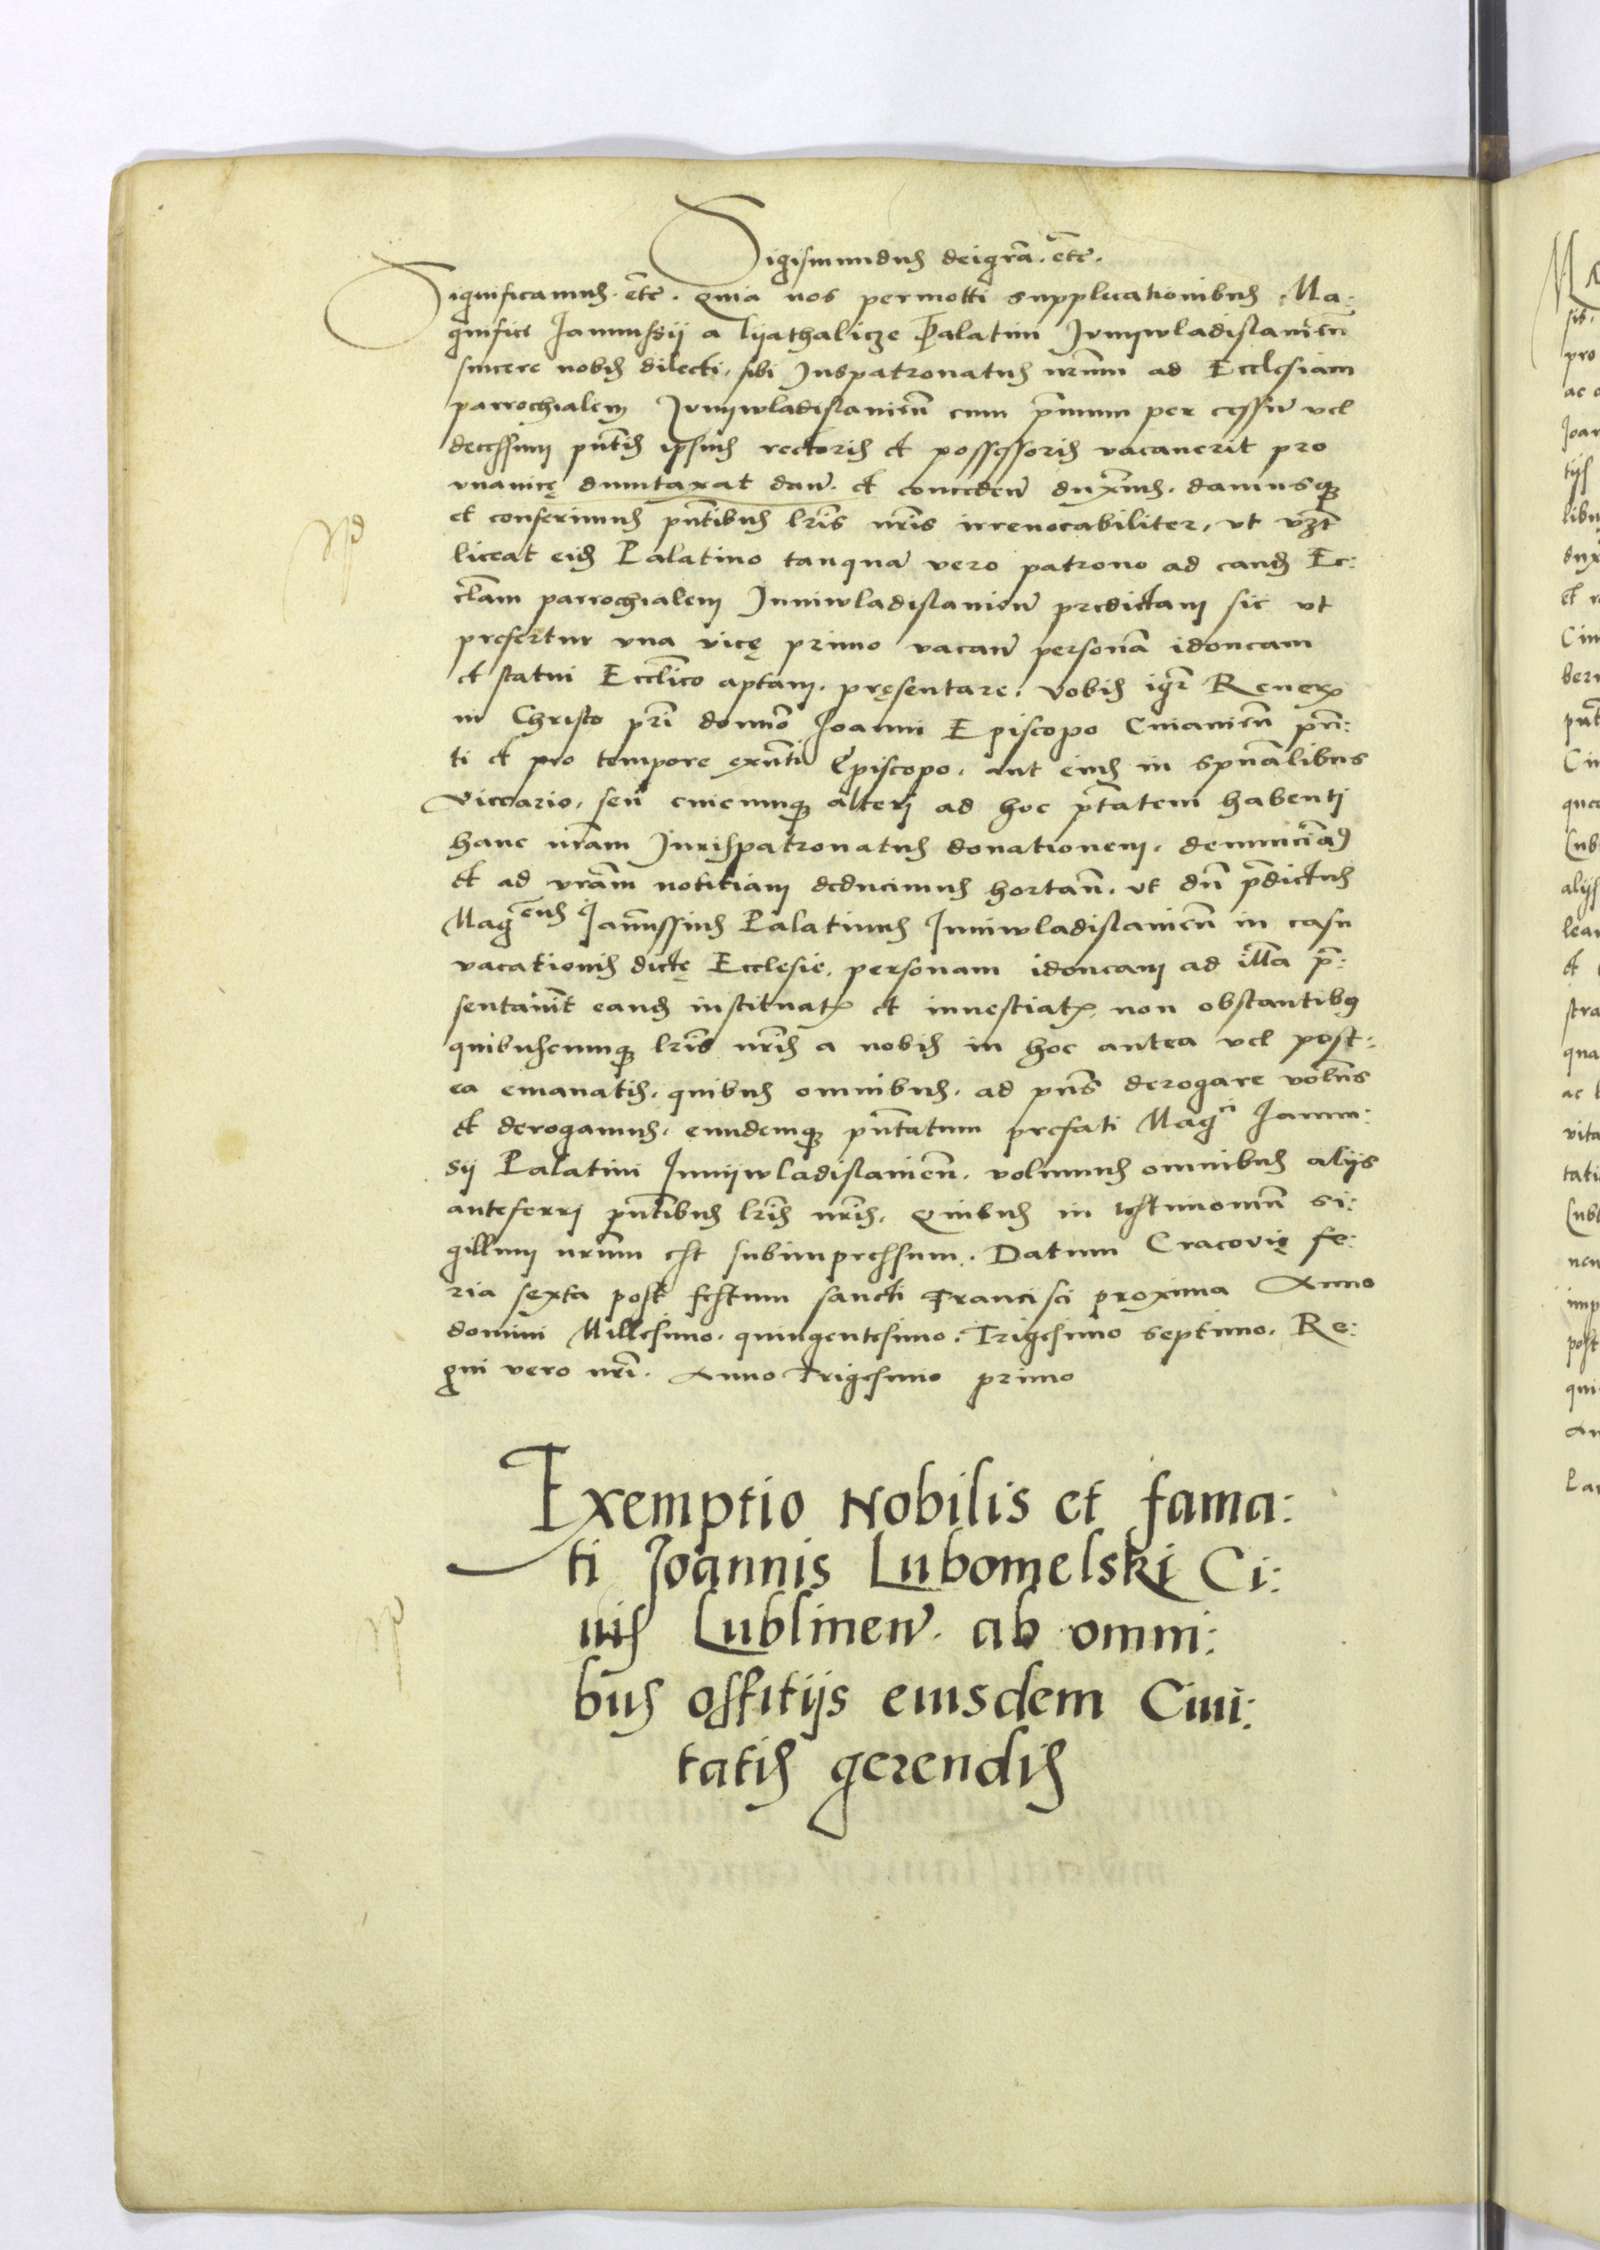 Sigismundus dei gra͞. et͞c.
Significamus. et͞c. Quia nos permotti supplicationibus Ma:
gnifici Iannussii a lyathalicze Palatini Junywladislauien͞
sincere nobis dilecti, sibi Juspatronatus nr͞um ad Ecclesiam
parrochialem Junywladislauien͞ cum pr͞imum per cessu͞ vel
decessum pn͞tis ipsius rectoris et possessoris vacauerit pro
vnauicę dumtaxat dan͞. et conceden͞ dux͞imus. damusq3
et conferimus pn͞tibus lr͞is nr͞is irreuocabiliter, vt vz͞t
liceat eid3 Palatino tanqua͞ vero patrono ad eand3 Ec:
cl͞am parrochialem Juniwladislauien͞ predictam sic vt
prefertur vna vicę primo vacan͞ persona͞ idoneam
et statui Eccl͞ico aptam. pręsentare. Vobis igr͞ Reuer͞
in Christo pr͞i domi͞o Joanni Episcopo Cuiauien͞ pn͞:
ti et pro tempore exn͞ti Episcopo. aut eius in spu͞alibus
Viccario, seu cuicumq3 alteri ad hoc pt͞atem habenti
hanc nr͞am Jurispatronatus donationem. denuncia͞
et ad vr͞am notitiam deducimus hortan͞. vt du͞ pr͞dictus
Mag͞cus Janussius Palatinus Juniwladislauien͞ in casu
vacationis dictę Ecclesie. personam idoneam ad illa͞ pr͞:
sentauit eand3 instituat͞ et inuestiat͞ non obstantibus
quibuscumq3 lr͞is nr͞is a nobis in hoc antea vel post:
ea emanatis. quibus omnibus. ad pn͞s derogare volum͞s
et derogamus. eundemq3 pn͞tatum prefati Mag͞ci Janu:
sij Palatini Junywladislauien͞. volumus omnibus alijs
anteferri pn͞tibus lr͞is nr͞is. Quibus in testimoniu͞ si:
gillum nr͞um est subimpressum. Datum Cracovię fe:
ria sexta post festum sancti Francisci proxima Anno
domini Millesimo. quingentesimo. Trigesimo septimo. Re:
gni vero nr͞i. Anno trigesimo primo
Exemptio Nobilis et fama:
ti Joannis Lubomelski Ci:
uis Lublinen͞. ab omni:
bus offitijs eiusdem Ciui:
tatis gerendis